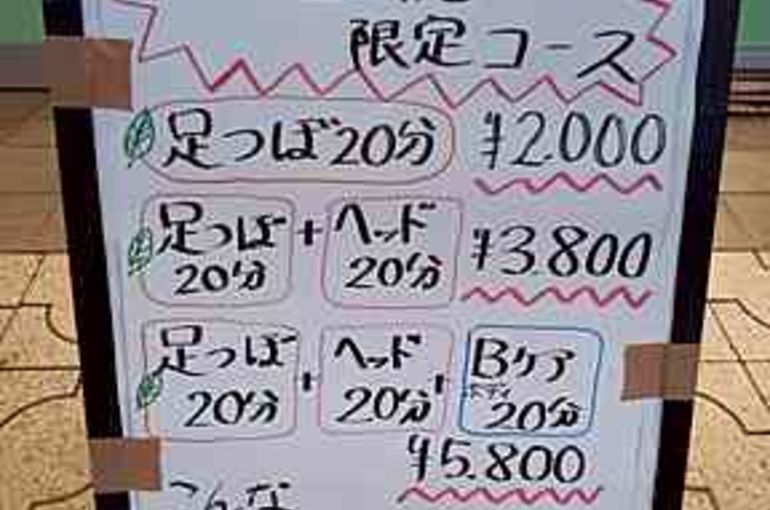 限定コース
足つぼ20分 ¥2.000
足つぼ + ヘッド ¥3.800
20分 20分
足つぼ + ヘッド + Bケア
ボディ
20分 20分 20分
¥5.800
こんな